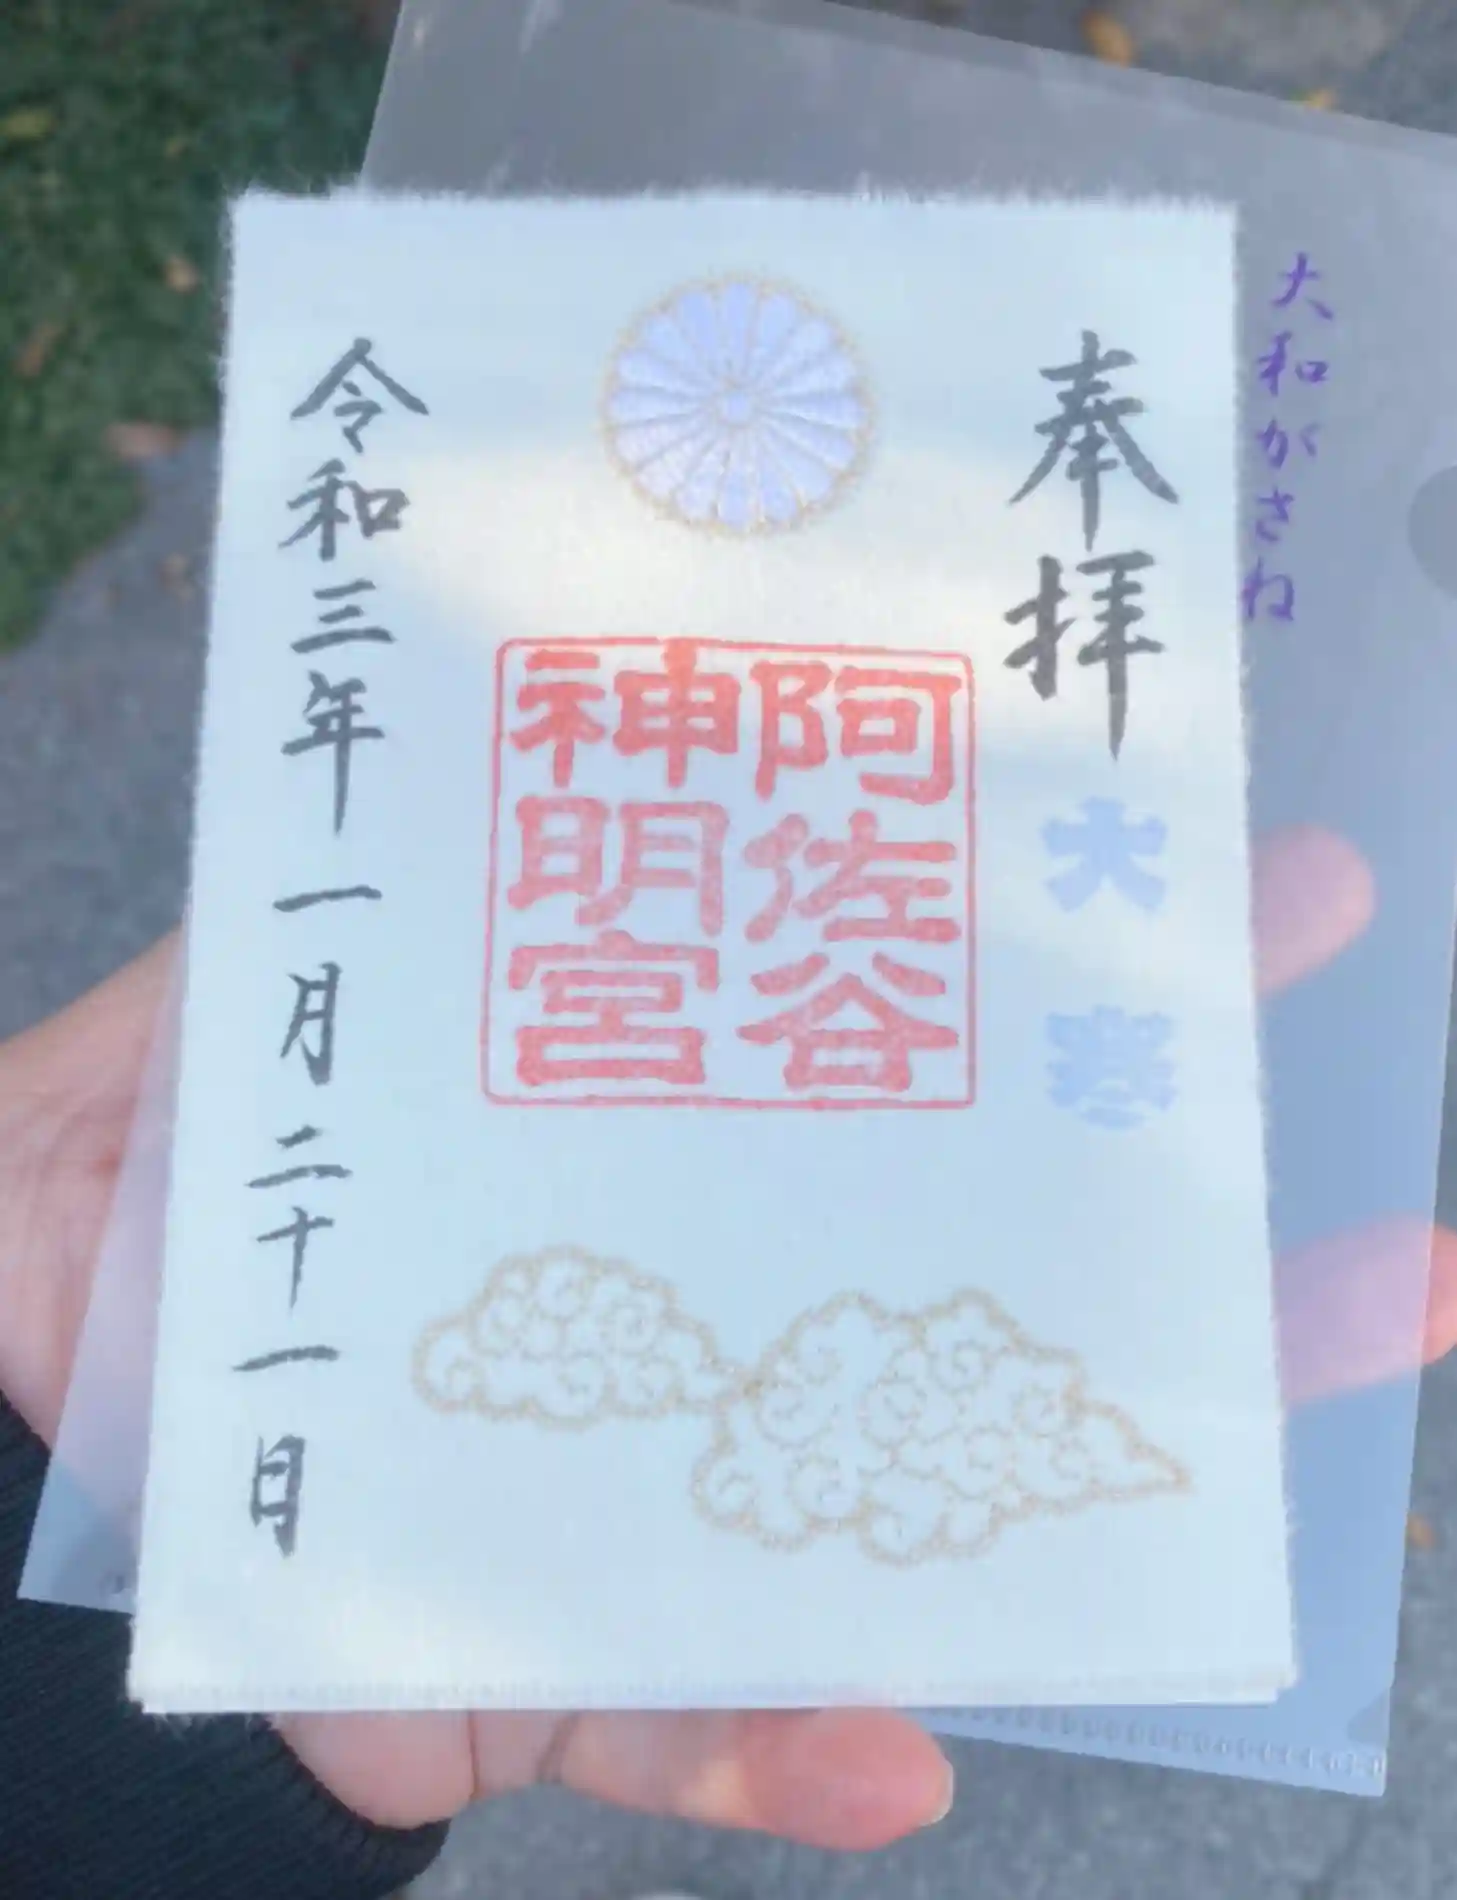 大和がさね
奉拝
大寒
阿佐谷
神明宮
令和三年一月二十一日